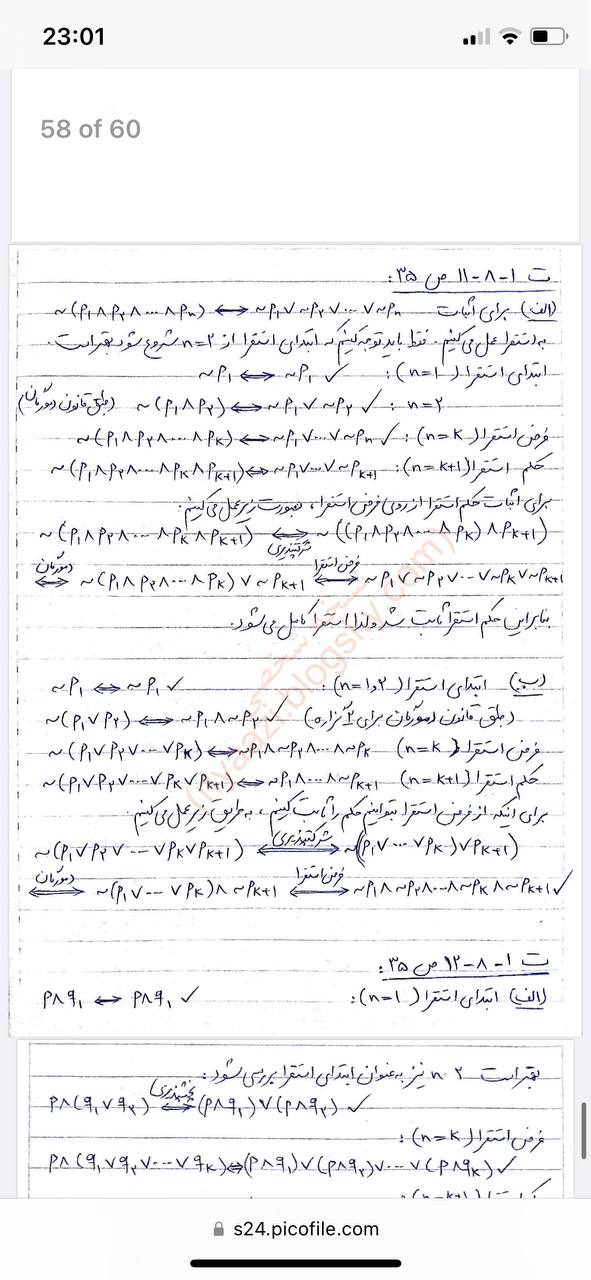 23:01
58 of 60
ت ۱-۸-۱۱ ص ۳۵:
(الف) برای اثبات ~(P₁∧P₂∧...∧Pn) ⟷ ~P₁∨~P₂∨...∨~Pn
به استقرا عمل می‌کنیم. فقط باید توجه کنیم که ابتدای استقرا از n=۲ شروع شود بهتر است.
ابتدای استقرا (n=1): ~P₁ ⟷ ~P₁ ✓
n=۲: ~(P₁∧P₂) ⟷ ~P₁∨~P₂ ✓ (طبق قانون دمورگان)
فرض استقرا (n=k): ~(P₁∧P₂∧...∧Pk) ⟷ ~P₁∨...∨~Pn ✓
حکم استقرا (n=k+1): ~(P₁∧P₂∧...∧Pk∧Pk+1) ⟷ ~P₁∨...∨~Pk+1
برای اثبات حکم استقرا از روی فرض استقرا، بصورت زیر عمل می‌کنیم:
~(P₁∧P₂∧...∧Pk∧Pk+1) ⟺ شرکتپذیری ~((P₁∧P₂∧...∧Pk)∧Pk+1)
⟺ دمورگان ~(P₁∧P₂∧...∧Pk)∨~Pk+1 ⟺ فرض استقرا ~P₁∨~P₂∨...∨~Pk∨~Pk+1
بنابراین حکم استقرا ثابت شد و لذا استقرا کامل می‌شود.
(ب) ابتدای استقرا (n=1و۲): ~P₁ ⟷ ~P₁ ✓
~(P₁∨P₂) ⟷ ~P₁∧~P₂ ✓ (طبق قانون دمورگان برای ۲ گزاره)
فرض استقرا (n=k) ~(P₁∨P₂∨...∨Pk) ⟷ ~P₁∧~P₂∧...∧~Pk
حکم استقرا (n=k+1) ~(P₁∨P₂∨...∨Pk∨Pk+1) ⟷ ~P₁∧...∧~Pk+1
برای اینکه از فرض استقرا بتوانیم حکم را ثابت کنیم، به طریق زیر عمل می‌کنیم
~(P₁∨P₂∨...∨Pk∨Pk+1) ⟺ شرکتپذیری ~(P₁∨...∨Pk)∨Pk+1)
⟺ دمورگان ~(P₁∨...∨Pk)∧~Pk+1 ⟺ فرض استقرا ~P₁∧~P₂∧...∧~Pk∧~Pk+1 ✓
ت ۱-۸-۱۲ ص ۳۵:
(الف) ابتدای استقرا (n=1): P∧q₁ ⟷ P∧q₁ ✓
بهتر است n ۲ نیز به عنوان ابتدای استقرا بررسی شود:
P∧(q₁∨q₂) ⟺ پخشپذیری (P∧q₁)∨(P∧q₂) ✓
فرض استقرا (n=k):
P∧(q₁∨q₂∨...∨qk) ⟺ (P∧q₁)∨(P∧q₂)∨...∨(P∧qk) ✓
s24.picofile.com